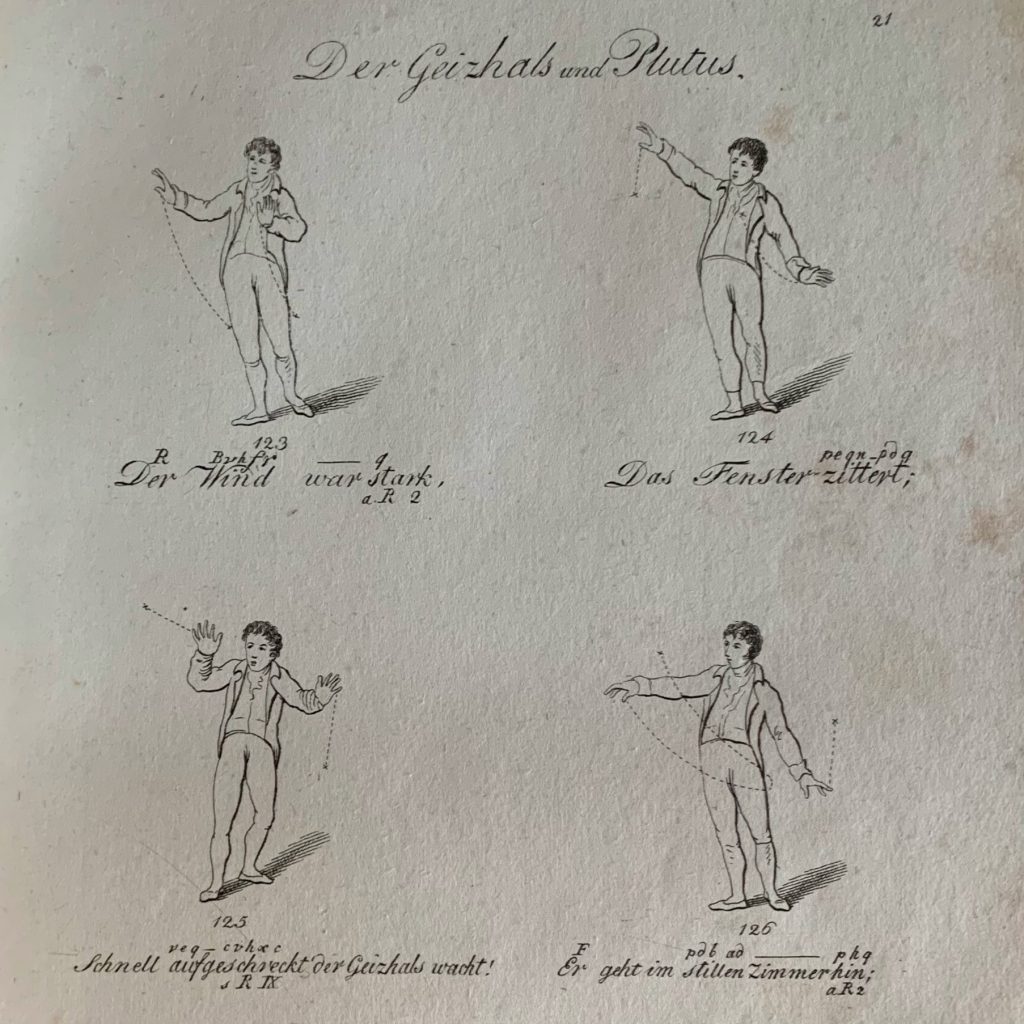 21
Der Geizhals und Plutus.
123
R Bvhfr — q
Der Wind war stark,
a. R 2
124
peqn-pdq
Das Fenster-zittert;
125
veq — cvhxc
Schnell aufgeschreckt der Geizhals wacht!
s R IX
126
F pdb ad — phq
Er geht im stillen Zimmer hin;
a R 2